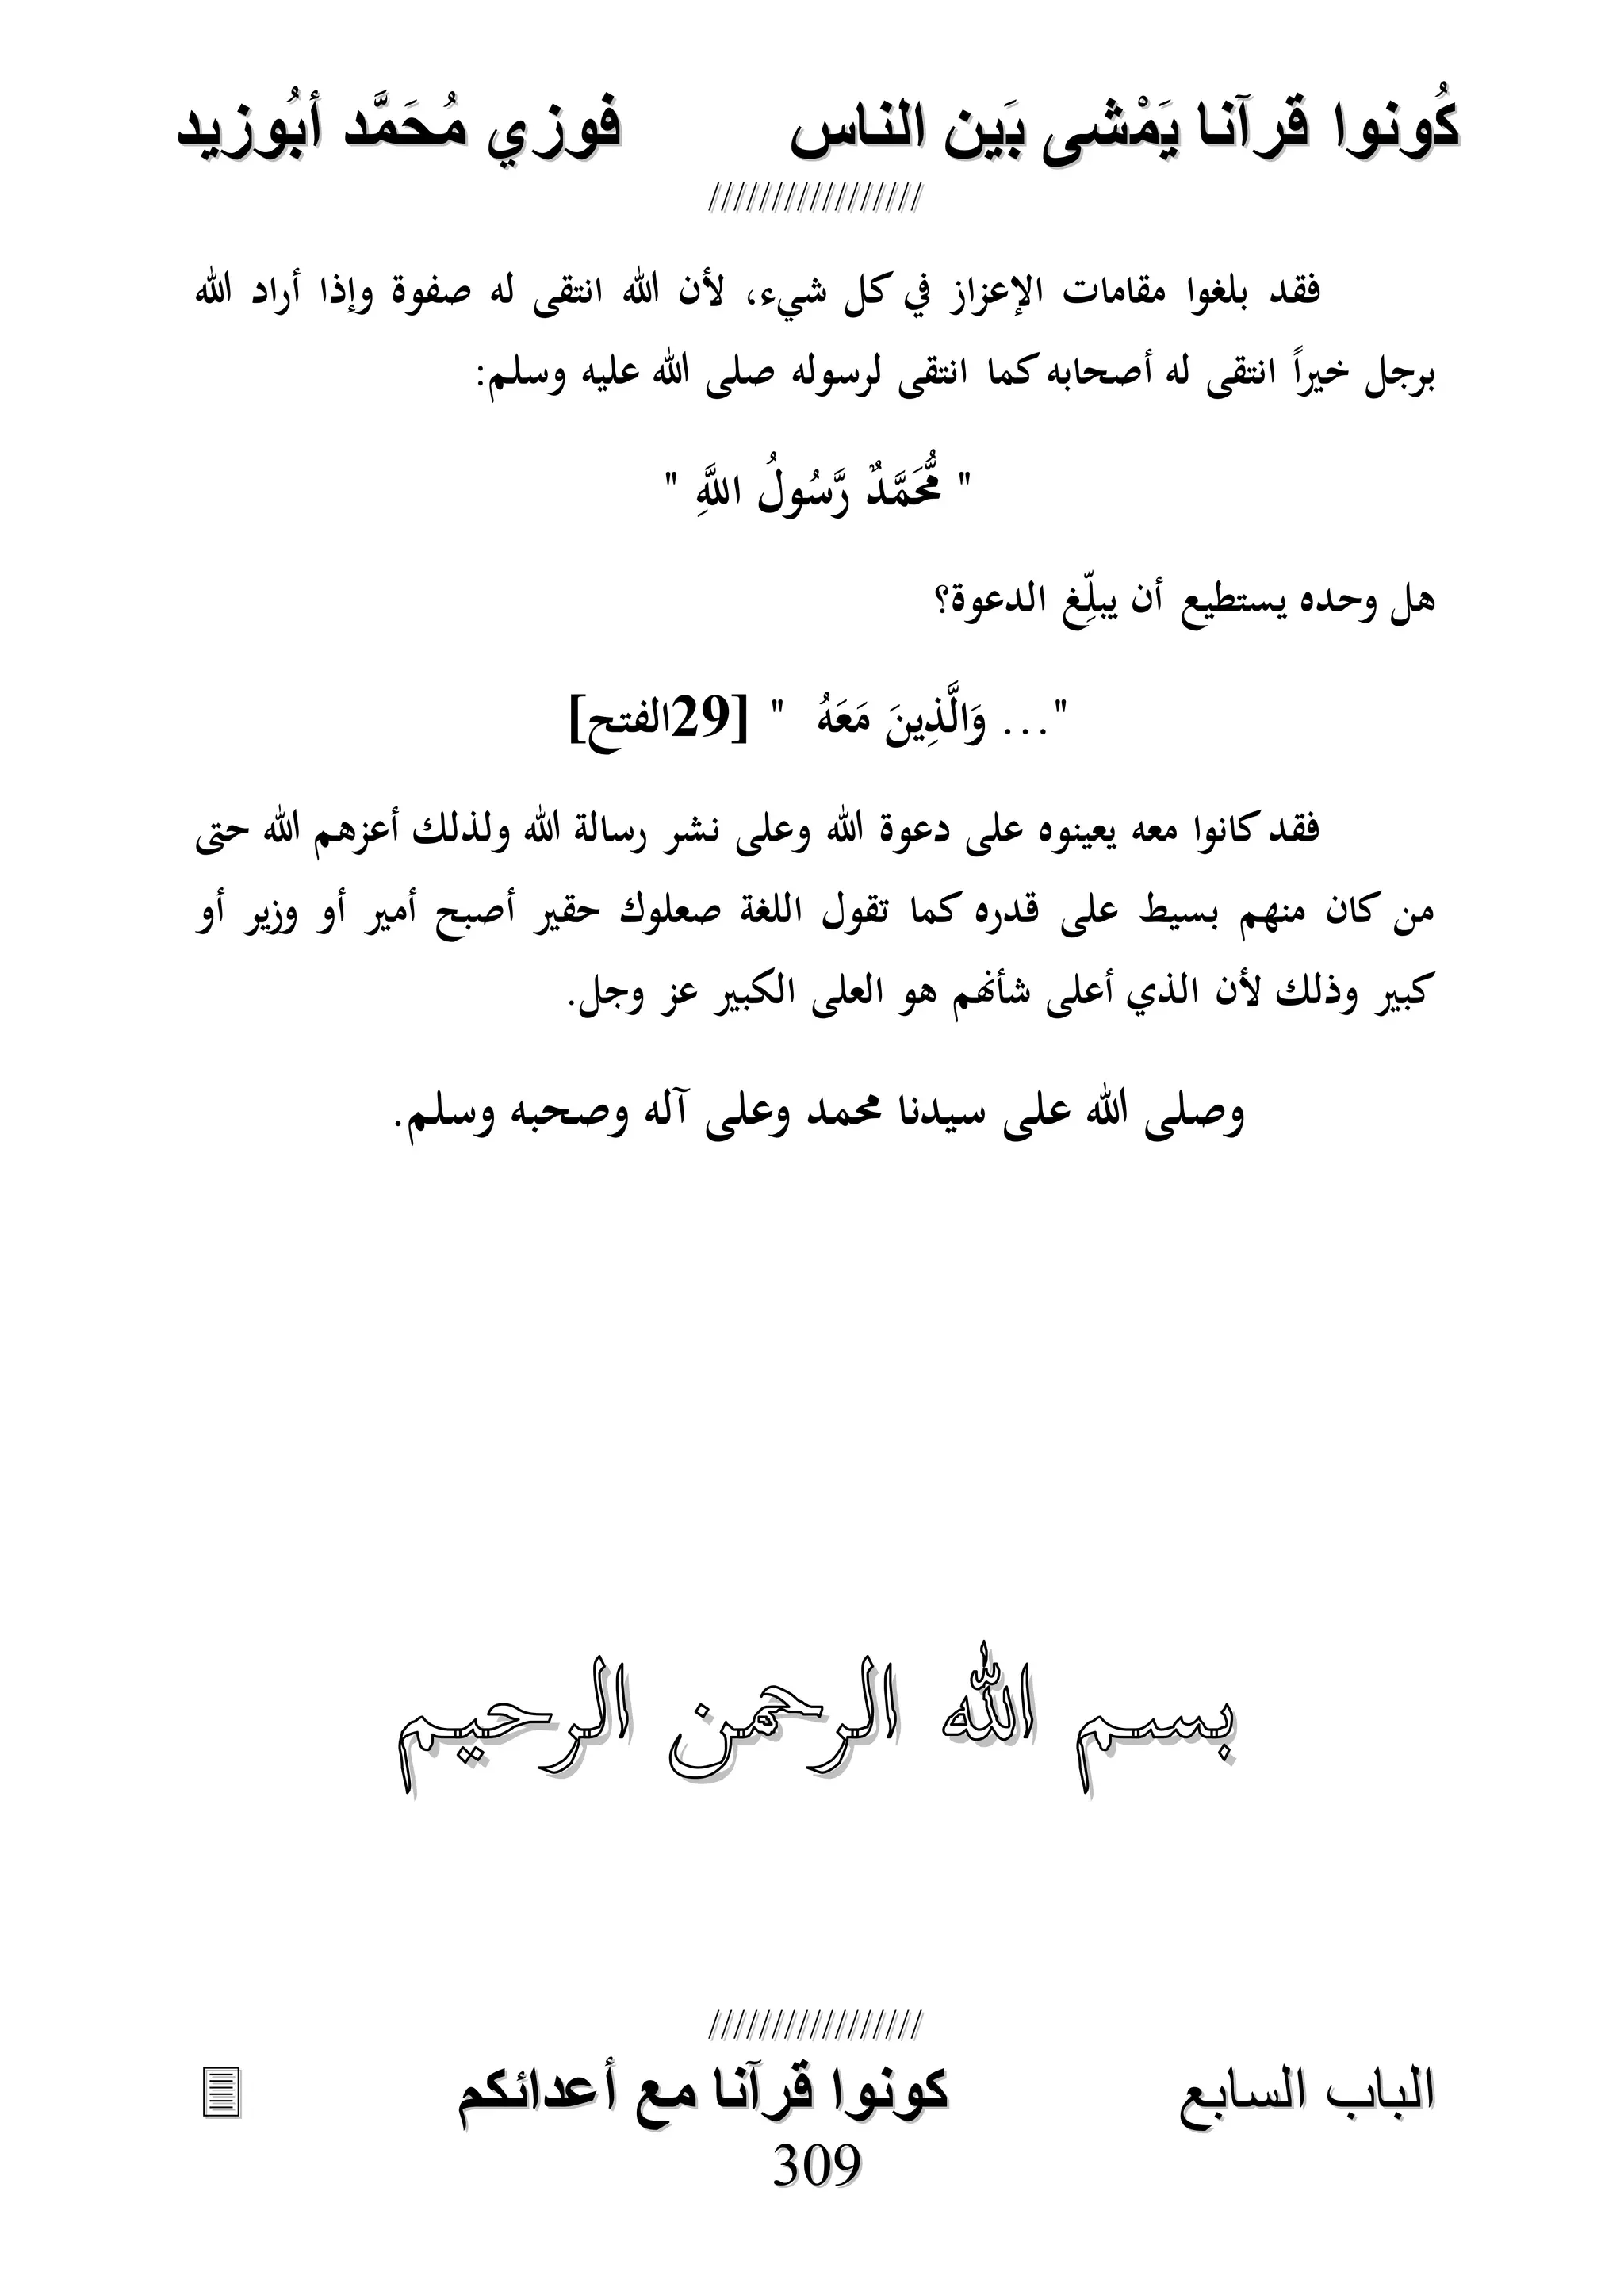 كُونوا قرآنا يَمْشى بَين الناس فوزي مُحَمَّد أبُوزيد
/////////////////
فقد بلغوا مقامات الإعزاز في كل شيء، لأن الله انتقى له صفوة وإذا أراد الله
برجل خيراً انتقى له أصحابه كما انتقى لرسوله صلى الله عليه وسلم:
" مُّحَمَّدٌ رَّسُولُ اللَّهِ "
هل وحده يستطيع أن يبلِّغ الدعوة؟
"... وَالَّذِينَ مَعَهُ " [29الفتح]
فقد كانوا معه يعينوه على دعوة الله وعلى نشر رسالة الله ولذلك أعزهم الله حتى
من كان منهم بسيط على قدره كما تقول اللغة صعلوك حقير أصبح أمير أو وزير أو
كبير وذلك لأن الذي أعلى شأنهم هو العلى الكبير عز وجل.
وصلى الله على سيدنا محمد وعلى آله وصحبه وسلم.
بسم الله الرحمن الرحيم
/////////////////
الباب السابع كونوا قرآنا مع أعدائكم
309